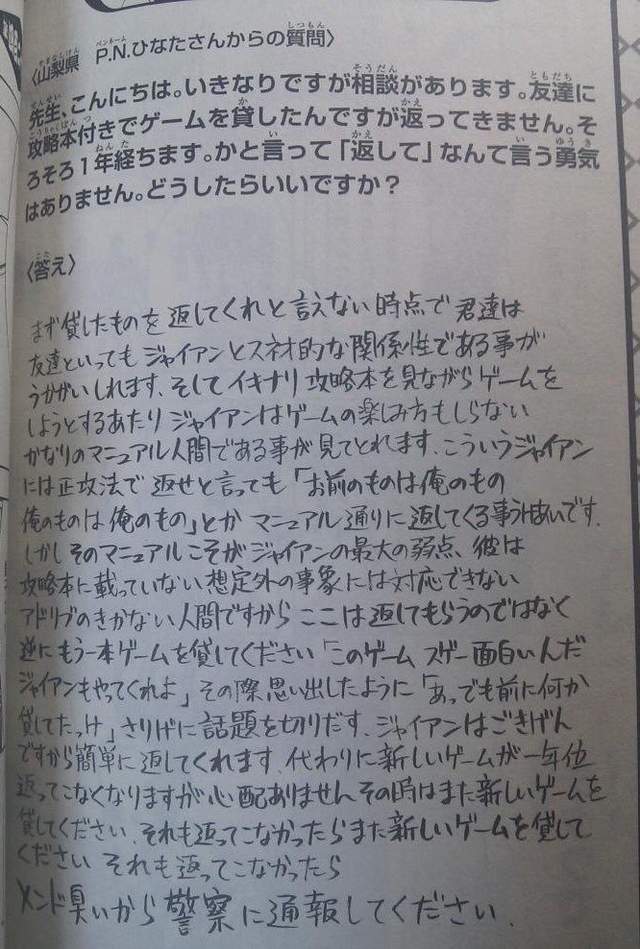 〈山梨県　P.N.ひなたさんからの質問〉
先生、こんにちは。いきなりですが相談があります。友達に
攻略本付きでゲームを貸したんですが返ってきません。そ
ろそろ1年経ちます。かと言って「返して」なんて言う勇気
はありません。どうしたらいいですか？
〈答え〉
まず貸したものを返してくれと言えない時点で君達は
友達といってもジャイアンとスネオ的な関係性である事が
うかがいしれます、そしてイキナリ攻略本を見ながらゲームを
しようとするあたりジャイアンはゲームの楽しみ方もしらない
かなりのマニュアル人間である事が見てとれます、こういうジャイアン
には正攻法で返せと言っても「お前のものは俺のもの
俺のものは俺のもの」とかマニュアル通りに返してくる事うけあいです、
しかしそのマニュアルこそがジャイアンの最大の弱点、彼は
攻略本に載っていない想定外の事象には対応できない
アドリブのきかない人間ですからここは返してもらうのではなく
逆にもう一本ゲームを貸してください「このゲームスゲー面白いんだ
ジャイアンもやってくれよ」その際思い出したように「あっでも前に何か
貸してたっけ」さりげに話題を切りだす、ジャイアンはごきげん
ですから簡単に返してくれます、代わりに新しいゲームが一年位
返ってこなくなりますが心配ありませんその時はまた新しいゲームを
貸してください、それも返ってこなかったらまた新しいゲームを貸して
くださいそれも返ってこなかったら
メンド臭いから警察に通報してください、